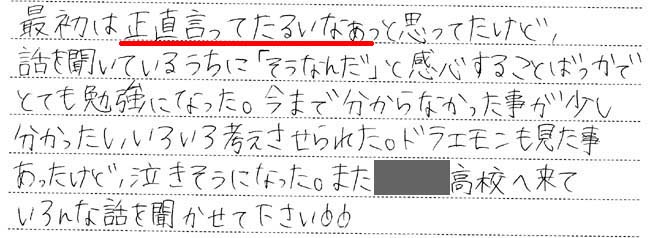 最初は正直言ってたるいなぁっと思ってたけど、
話を聞いているうちに「そうなんだ」と感心することばっかで
とても勉強になった。今まで分からなかった事が少し
分かったし、いろいろ考えさせられた。ドラエモンも見た事
あったけど、泣きそうになった。また高校へ来て
いろんな話を聞かせて下さい